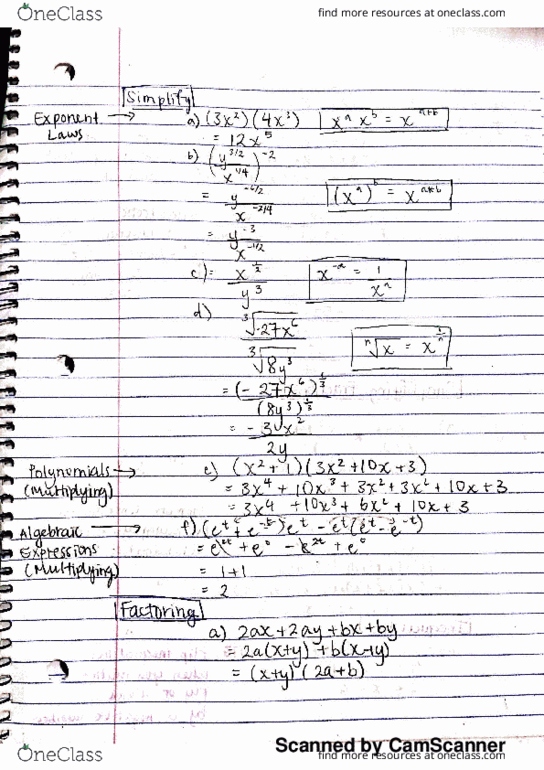 OneClass
find more resources at oneclass.com
Simplify
Exponent Laws →
a) (3x²)(4x³)
xᵃ xᵇ = xᵃ⁺ᵇ
= 12x⁵
b) (y^(3/2) / x^(1/4))^(-2)
= y^(-6/2) / x^(-2/4)
(xᵃ)ᵇ = x^(a*b)
= y^(-3) / x^(-1/2)
c) = x^(1/2) / y³
x^(-a) = 1 / xᵃ
d) ³√-27x⁶ / ³√8y³
ⁿ√x = x^(1/n)
= (-27x⁶)^(1/3) / (8y³)^(1/3)
= -3x² / 2y
Polynomials → (Multiplying)
e) (x²+1)(3x²+10x+3)
= 3x⁴ + 10x³ + 3x² + 3x² + 10x + 3
= 3x⁴ + 10x³ + 6x² + 10x + 3
Algebraic → Expressions (Multiplying)
f) (eᵗ + e⁻ᵗ)eᵗ - eᵗ(eᵗ - e⁻ᵗ)
= e²ᵗ + e⁰ - e²ᵗ + e⁰
= 1+1
= 2
Factoring
a) 2ax+2ay+bx+by
= 2a(x+y)+b(x+y)
= (x+y)(2a+b)
Scanned by CamScanner
OneClass
find more resources at oneclass.com